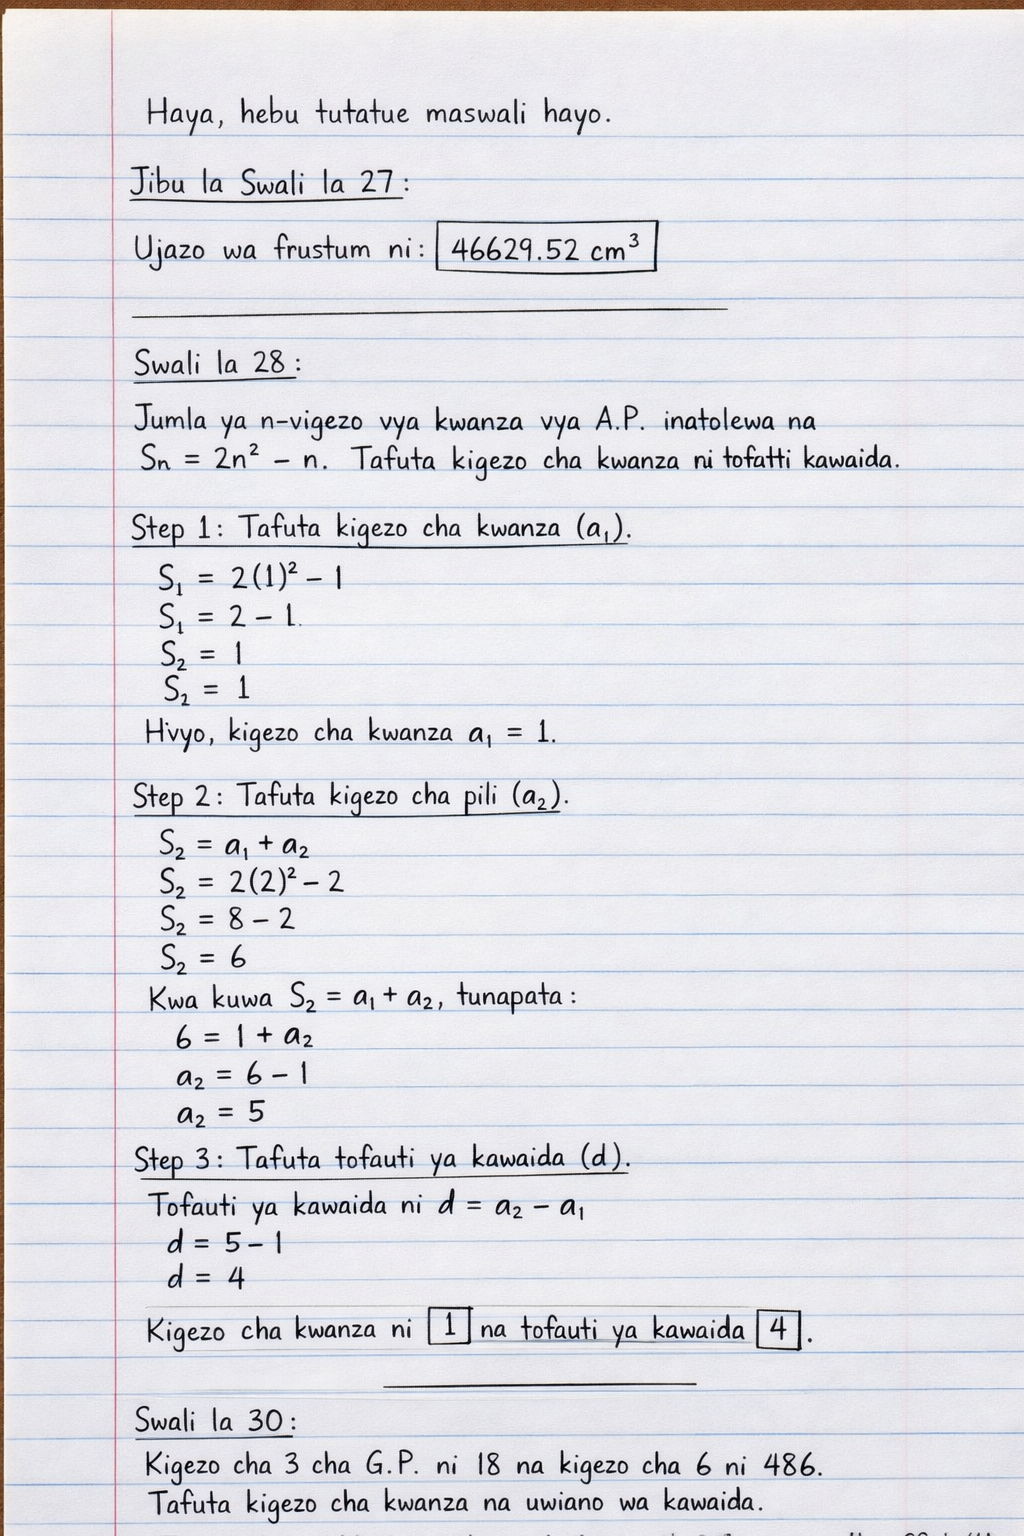 Haya, hebu tutatue maswali hayo.
Jibu la Swali la 27:
Ujazo wa frustum ni: 46629.52 cm³
Swali la 28:
Jumla ya n-vigezo vya kwanza vya A.P. inatolewa na
Sn = 2n² - n. Tafuta kigezo cha kwanza ni tofatti kawaida.
Step 1: Tafuta kigezo cha kwanza (a₁).
S₁ = 2(1)² - 1
S₁ = 2 - 1.
S₂ = 1
S₂ = 1
Hivyo, kigezo cha kwanza a₁ = 1.
Step 2: Tafuta kigezo cha pili (a₂).
S₂ = a₁ + a₂
S₂ = 2(2)² - 2
S₂ = 8 - 2
S₂ = 6
Kwa kuwa S₂ = a₁ + a₂, tunapata:
6 = 1 + a₂
a₂ = 6 - 1
a₂ = 5
Step 3: Tafuta tofauti ya kawaida (d).
Tofauti ya kawaida ni d = a₂ - a₁
d = 5 - 1
d = 4
Kigezo cha kwanza ni 1 na tofauti ya kawaida 4.
Swali la 30:
Kigezo cha 3 cha G.P. ni 18 na kigezo cha 6 ni 486.
Tafuta kigezo cha kwanza na uwiano wa kawaida.